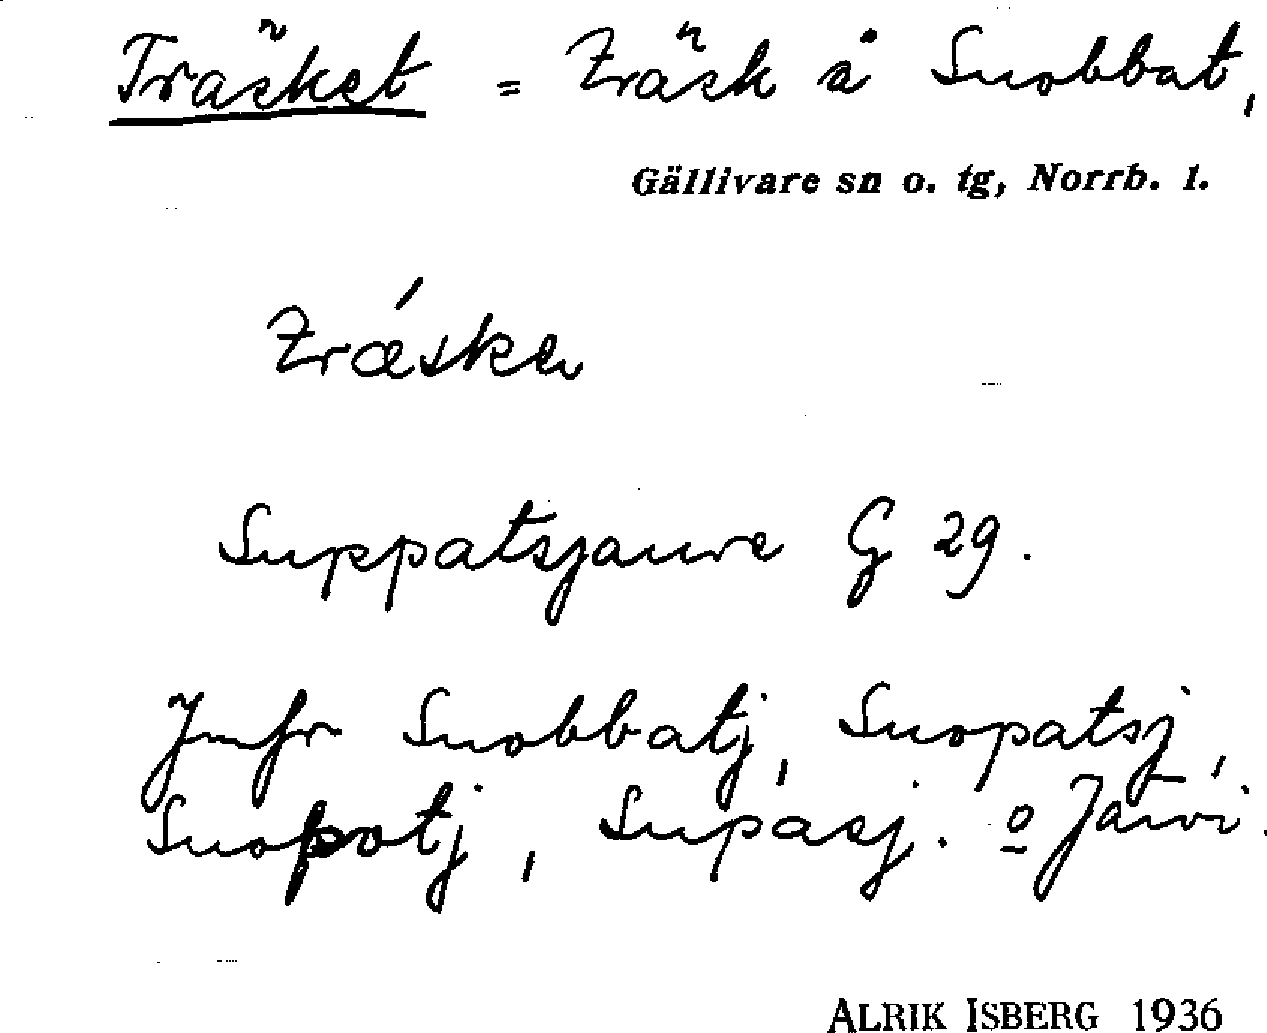 Träsket = Träsk å Suobbat,
Gällivare sn o. tg, Norrb. l.
Trǽske
Suppatsjaure G 29.
Jmfr Suobbatj, Suopatsj,
Suopotj, Supasj. o Järvi.
ALRIK ISBERG 1936